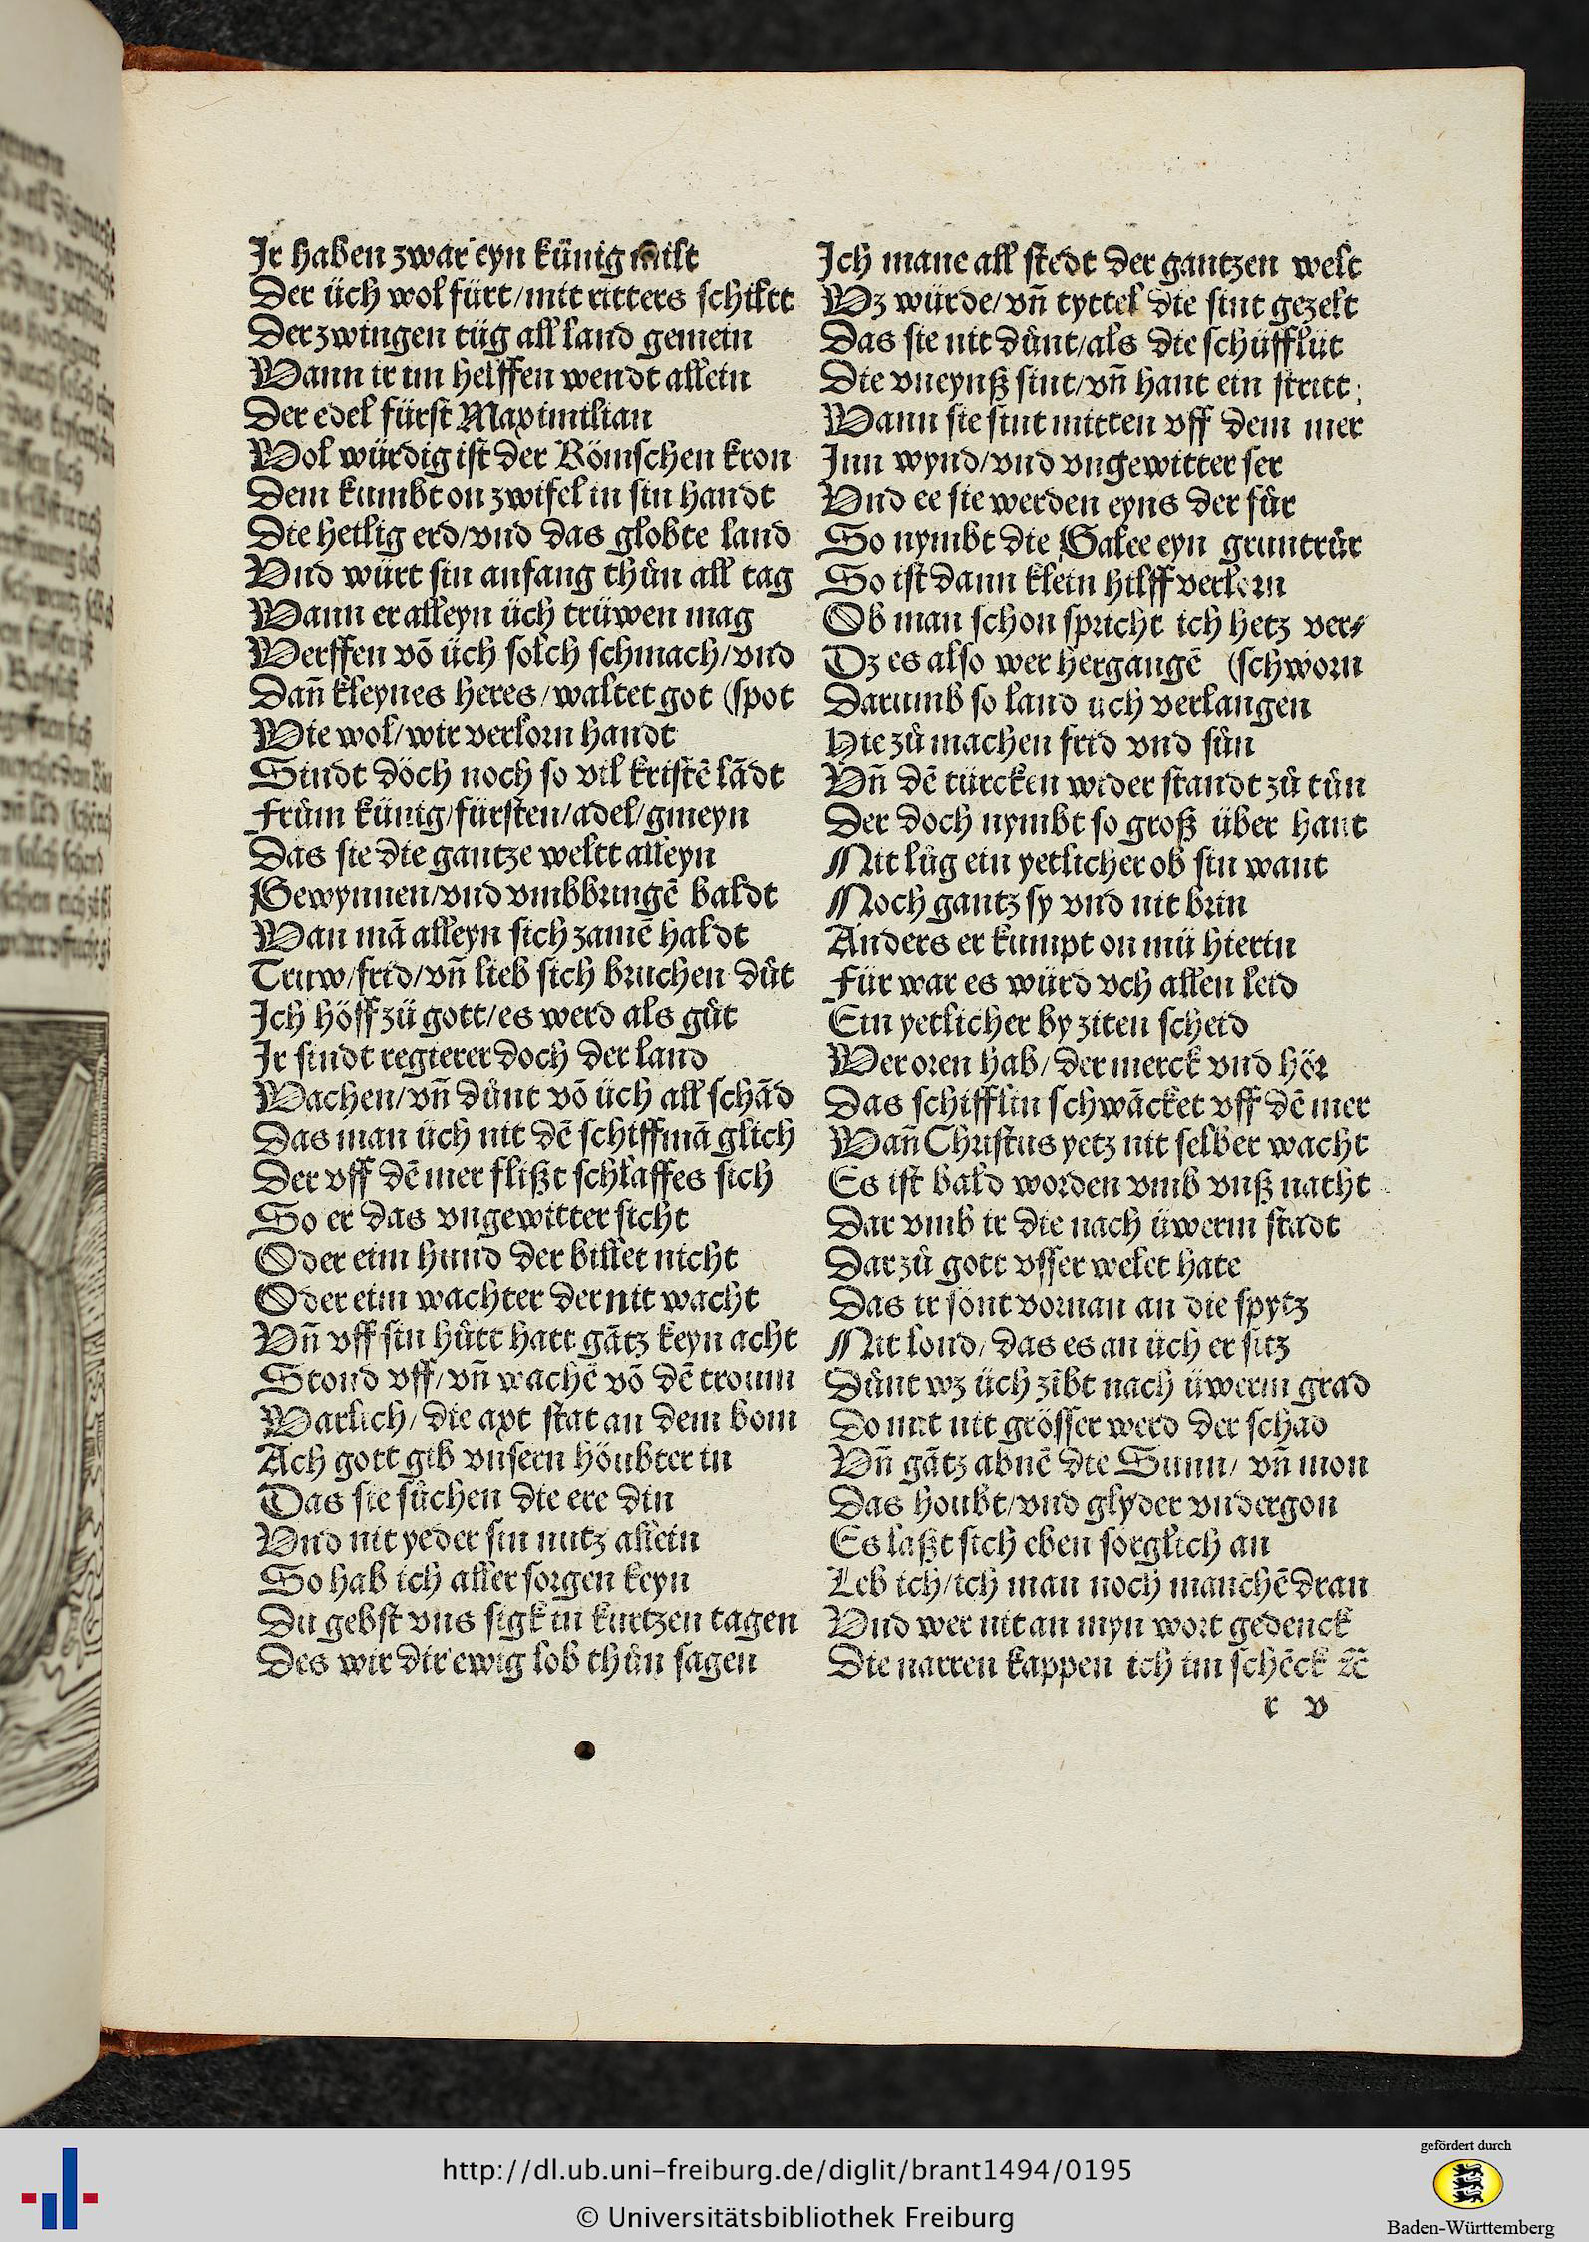 Ir haben zwar eyn künig milt
Der üch wol fürt/mit ritters schiltt
Der zwingen tüg all land gemein
Wann ir im helffen wendt allein
Der edel fürst Maximilian
Wol würdig ist der Römschen kron
Dem kumbt on zwifel in sin handt
Die heilig erd/vnd das globte land
Vnd würt sin anfang thůn all tag
Wann er alleyn üch trüwen mag
Werffen vō üch solch schmach/vnd
Dañ kleynes heres/waltet got (spot
Wie wol/wir verlorn handt
Sindt döch noch so vil kristē lādt
Frům künig/fürsten/adel/gmeyn
Das sie die gantze weltt alleyn
Gewynnen/vnd vmbbringē baldt
Wan mā alleyn sich zamē haldt
Truw/frid/vñ lieb sich bruchen důt
Ich höff zü gott/es werd als gůt
Ir sindt regierer doch der land
Wachen/vñ důnt vō üch all schād
Das man üch nit dē schiffmā glich
Der vff dē mer flißt schlaffes sich
So er das vngewitter sicht
Oder eim hund der billet nicht
Oder eim wachter der nit wacht
Vñ vff sin hůtt hatt gātz keyn acht
Stond vff/vñ wachē vō dē troum
Warlich/die axt stat an dem bom
Ach gott gib vnsern höubter in
Das sie sůchen die ere din
Vnd nit yeder sin nutz allein
So hab ich aller sorgen keyn
Du gebst vns sigk in kurtzen tagen
Des wir dir ewig lob thůn sagen
Ich mane all stedt der gantzen welt
Wz würde/vñ tyttel die sint gezelt
Das sie nit důnt/als die schüfflüt
Die vneynß sint/vñ hant ein stritt;
Wann sie sint mitten vff dem mer
Inn wynd/vnd vngewitter ser
Vnd ee sie werden eyns der fůr
So nymbt die Galee eyn gruntrůr
So ist dann klein hilff verlorn
Ob man schon spricht ich hetz ver⸗
Dz es also wer hergangē (schworn
Darumb so land üch verlangen
Hie zů machen frid vnd sůn
Vñ dē türcken wider standt zů tůn
Der doch nymbt so groß über hant
Nit lůg ein yetlicher ob sin want
Noch gantz sy vnd nit brin
Anders er kumpt on mü hierin
Für war es würd vch allen leid
Ein yetlicher by ziten scheid
Wer oren hab/der merck vnd hör
Das schifflin schwācket vff dē mer
Wañ Christus yetz nit selber wacht
Es ist bald worden vmb vnß nacht
Dar vmb ir die nach üwerm stadt
Dar zů gott vsser welet hate
Das ir sönt vornan an die spytz
Nit lond/das es an üch er sitz
Důnt wz üch zībt nach üwerm grad
Do mit nit grösser werd der schad
Vñ gātz abnē die Sunn/vñ mon
Das houbt/vnd glyder vndergon
Es laßt sich eben sorglich an
Leb ich/ich man noch manchē dran
Vnd wer nit an myn wort gedenck
Die narren kappen ich im schēck ꝛc̄
r v
http://dl.ub.uni-freiburg.de/diglit/brant1494/0195
© Universitätsbibliothek Freiburg
gefördert durch
Baden-Württemberg